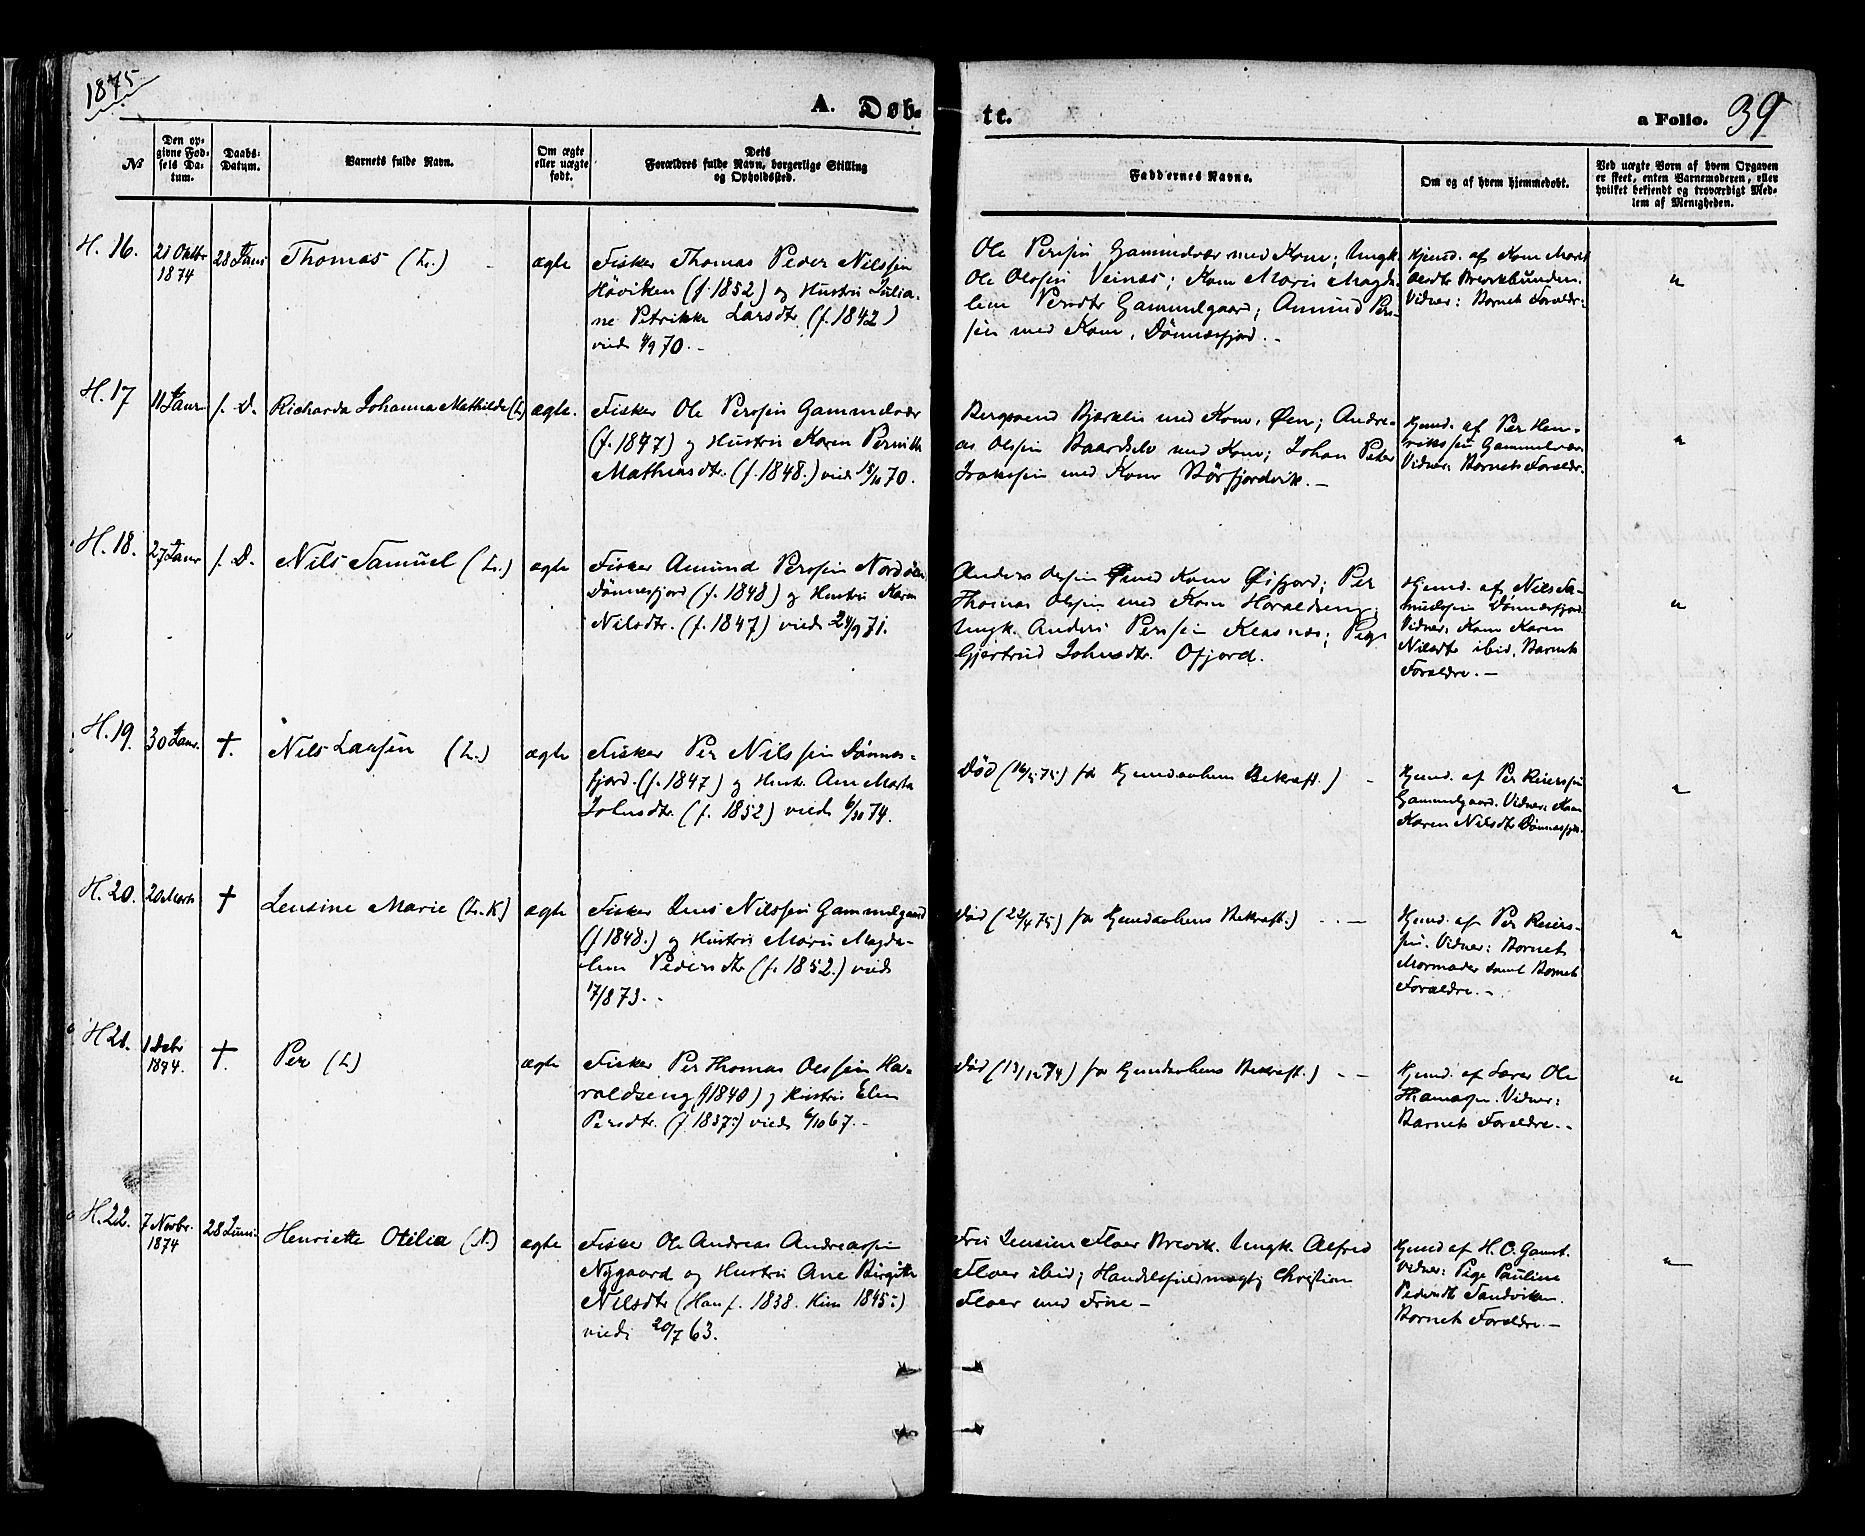 1875
A. Døb-
te.
a Folio. 39
№
Den op-
givne Fød-
sels Da-
tum.
Daabs-
Datum.
Barnets fulde Navn.
Om ægte
eller uægte
født.
Dets
Forældres fulde Navn, borgerlige Stilling
og Opholdssted.
Faddernes Navne.
Om og af hvem hjemmedøbt.
Ved uægte Born af hvem Opgaven
er skeet, enten Barnemoderen, eller
hvilket bekjendt og troværdigt Med-
lem af Menigheden.
H. 16.
21 Oktbr
1874
28 Juni
Thomas (L.)
ægte
Fisker Thomas Peder Nilssen
Haviken (f. 1852) og Hustru Julia-
ne Petrikke Larsdtr. (f. 1842)
viede 4/9 70.-
Ole Perssen Gammelvær med Kone; Ungk.
Ole Olssen Veinæs; Kone Maria Magda-
lena Persdtr Gammelgaard; Amund Pers-
sen med Kone, Dønnesfjord.-
Hjemd. af Kone Marit
Vidner: Barnets Forældre:
"
H. 17
11 Janr
s. D.
Richarda Johanna Mathilde (L)
ægte.
Fisker Ole Perssen Gammelvær
(f. 1847) og Hustru Karen Pernille
Mathiasdtr. (f. 1848.) viede 18/10 70.
Bergsvend Bjørklie med Kone, Øen; Andre-
as Olssen Baardselv med Kone; Johan Peter
Isakssen med Kone Børfjordvik.-
Hjemd. af Per Hen-
rikssen Gammelvær
Vidner: Barnets Forældr.
"
H. 18.
27 Janr
s. D.
Nils Samuel (L.)
ægte
Fisker Amund Perssen Nordøen
Dønnesfjord (f. 1848) og Hustru Karen
Nilsdtr. (f. 1847) viede 24/9 71.
Anders Olssen med Kone Øifjord; Per
Thomas Olssen med Kone Haraldseng;
Ungk. Anders Perssen Klasnæs; Pige
Gjertrud Johnsdtr. Ofjord.
Hjemd. af Nils Sa-
muelssen Dønnesfjord
Vidner: Kone Karen
Nilsdtr ibid. Barnets
Forældre.-
"
H. 19.
30 Janr.
†.
Nils Larsen (L.)
ægte
Fisker Per Nilssen Dønnes-
fjord. (f. 1847) og Hustr. Ane Marta
Johnsdtr. (f. 1852) viede 6/10 74.
Død (16/5 75) før Hjemdaabens Bekræft.) -
Hjemd. af Per Reierssen
Gammelgaard. Vidner: Kone
Karen Nilsdtr Dønnesfjor.
"
H. 20.
20 Marts
†
Lensine Marie (L.K.)
ægte
Fisker Jens Nilssen Gammelgaard
(f 1848.) og Hustru Maria Magda-
lena Pedersdtr (f. 1852.) viede
17/8 73.-
Død (22/4 75) før Hjemdaabens Bekræft.) - -
Hjemd. af Per Reiers-
sen. Vidner: Barnets
Mormoder samt Barnets
Forældre.-
"
H 21.
1 Debr
1874.
†.
Per (L)
ægte
Fisker Per Thomas Olssen Ha-
raldseng (f 1840) og Hustru Elen
Persdtr. (f 1837:) viede 6/10 67.-
Død (13/12 74) før Hjemdaabens Bekræft.) - -
Hjemd. af Lærer Ole
Thomassen. Vidner:
Barnets Forældre.-
"
H. 22.
7 Novbr.
1874
28 Juni
Henriette Otilia (N.)
ægte
Fisker Ole Andreas Andreassen
Nygaard og Hustru Ane Birgitte
Nilsdtr (Han f. 1838. Hun 1845:)
viede 20/7 63.
Fru Jensine Floer Brevik. Ungk. Alfred
Floer ibid; Handelsfuldmægtig Christian
Floer med Frue-
Hjemd af H. C. Gamst.
Vidner: Pige Pauline
Pedersdtr Sandviken.
Barnets Forældre.-
"